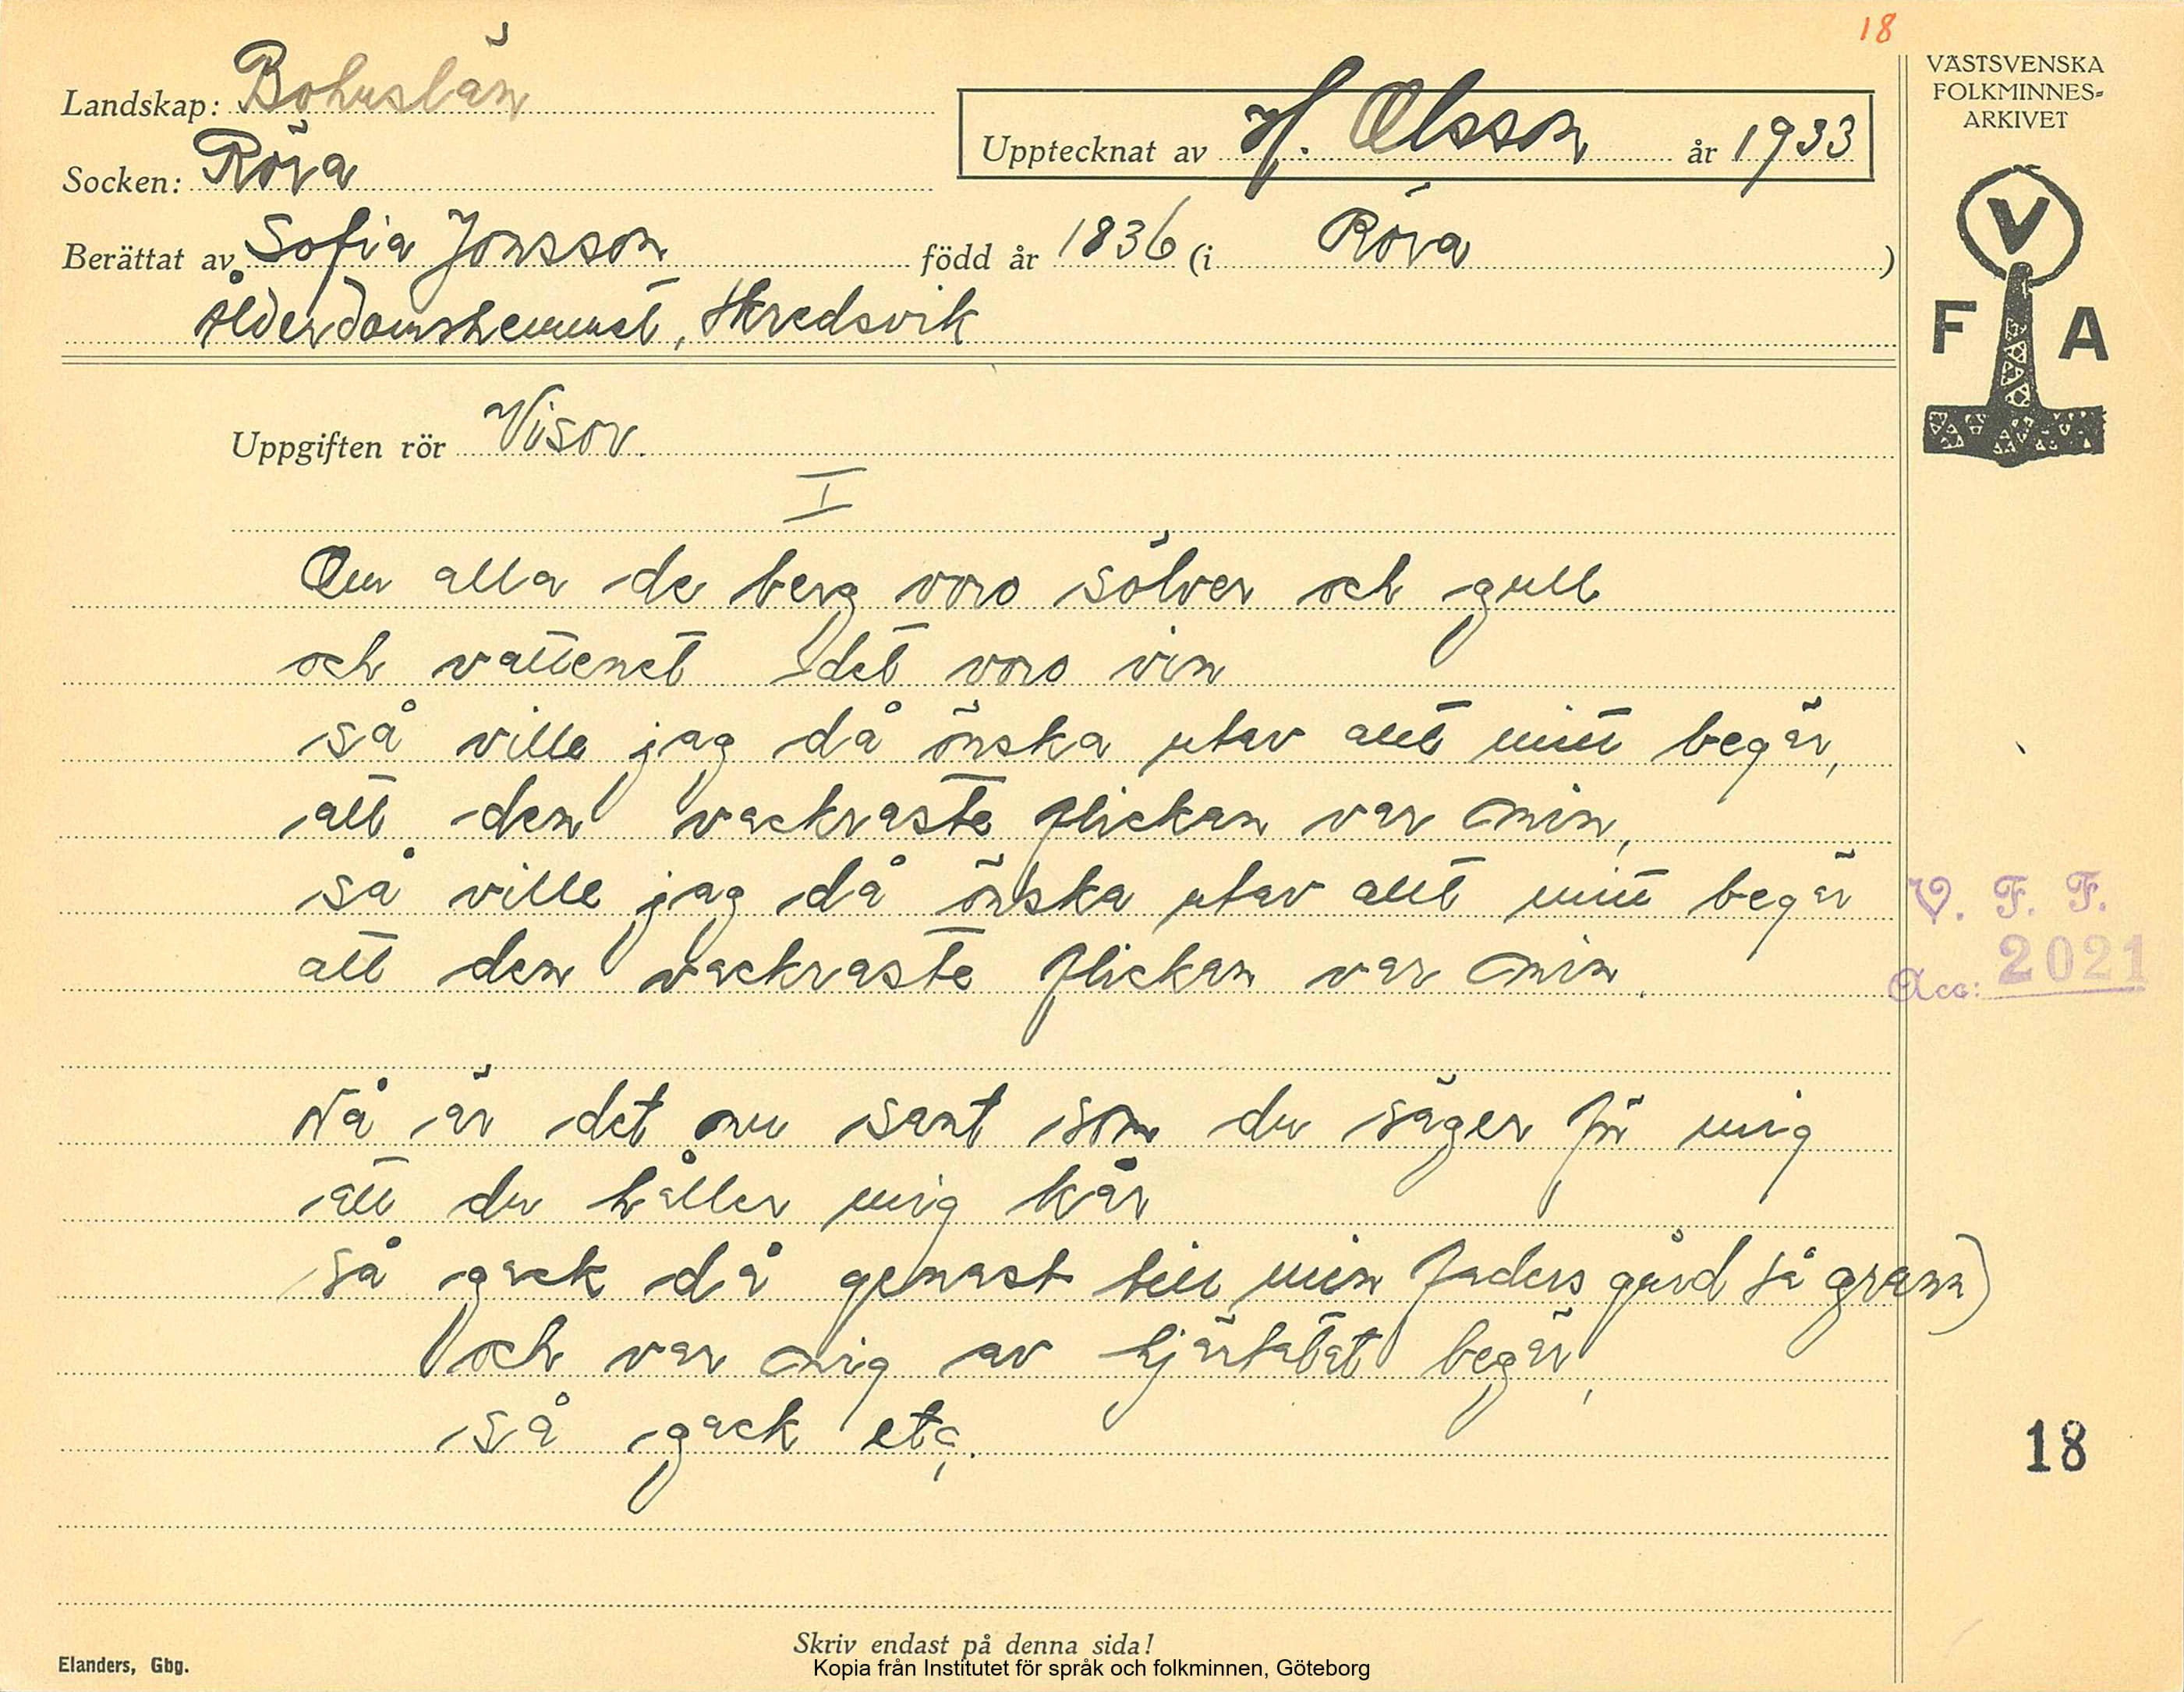 18
Landskap: Bohuslän
Socken: Röra
Upptecknat av H. Olsson år 1933
Berättat av Sofia Jonsson född år 1836 (i Röra)
Ålderdomshemmet, Skredsvik
VÄSTSVENSKA
FOLKMINNES-
ARKIVET
V
F A
Uppgiften rör Visor.
I
Om alla de berg voro sölver och gull
och vattenet det voro vin
så ville jag då önska utav allt mitt begär,
att den vackraste flickan var min,
så ville jag då önska utav allt mitt begär
att den vackraste flickan var min.
V. F. F.
Acc: 2021
Nå är det nu sant som du säger för mig
att du håller mig kär
så gack då genast till min faders gård så grann)
och var mig av hjärtatat begär,
så gack etc.
18
Skriv endast på denna sida!
Elanders, Gbg.
Kopia från Institutet för språk och folkminnen, Göteborg